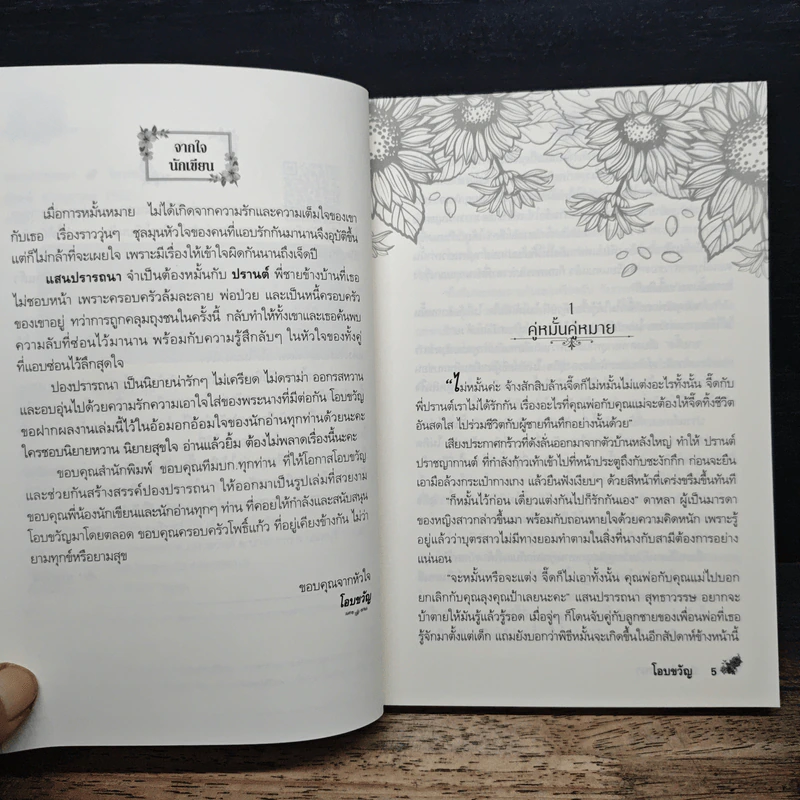 จากใจ
นักเขียน
เมื่อการหมั้นหมาย ไม่ได้เกิดจากความรักและความเต็มใจของเขา
กับเธอ เรื่องราววุ่นๆ ชุลมุนหัวใจของคนที่แอบรักกันมานานจึงอุบัติขึ้น
แต่ก็ไม่กล้าที่จะเผยใจ เพราะมีเรื่องให้เข้าใจผิดกันนานถึงเจ็ดปี
แสนปรารถนา จำเป็นต้องหมั้นกับ ปรานต์ พี่ชายข้างบ้านที่เธอ
ไม่ชอบหน้า เพราะครอบครัวล้มละลาย พ่อป่วย และเป็นหนี้ครอบครัว
ของเขาอยู่ ทว่าการถูกคลุมถุงชนในครั้งนี้ กลับทำให้ทั้งเขาและเธอค้นพบ
ความลับที่ซ่อนไว้มานาน พร้อมกับความรู้สึกลับๆ ในหัวใจของทั้งคู่
ที่แอบซ่อนไว้ลึกสุดใจ
ปองปรารถนา เป็นนิยายน่ารักๆ ไม่เครียด ไม่ดราม่า ออกรสหวาน
และอบอุ่นไปด้วยความรักความเอาใจใส่ของพระนางที่มีต่อกัน โอบขวัญ
ขอฝากผลงานเล่มนี้ไว้ในอ้อมอกอ้อมใจของนักอ่านทุกท่านด้วยนะคะ
ใครชอบนิยายหวาน นิยายสุขใจ อ่านแล้วยิ้ม ต้องไม่พลาดเรื่องนี้นะคะ
ขอบคุณสำนักพิมพ์ ขอบคุณทีมบก.ทุกท่าน ที่ให้โอกาสโอบขวัญ
และช่วยกันสร้างสรรค์ปองปรารถนา ให้ออกมาเป็นรูปเล่มที่สวยงาม
ขอบคุณพี่น้องนักเขียนและนักอ่านทุกๆ ท่าน ที่คอยให้กำลังและสนับสนุน
โอบขวัญมาโดยตลอด ขอบคุณครอบครัวโพธิ์แก้ว ที่อยู่เคียงข้างกัน ไม่ว่า
ยามทุกข์หรือยามสุข
ขอบคุณจากหัวใจ
โอบขวัญ
1
คู่หมั้นคู่หมาย
“ไม่หมั้นค่ะ จ้างสักสิบล้านจี๊ดก็ไม่หมั้นไม่แต่งอะไรทั้งนั้น จี๊ดกับ
พี่ปรานต์เราไม่ได้รักกัน เรื่องอะไรที่คุณพ่อกับคุณแม่จะต้องให้จี๊ดทิ้งชีวิต
อันสดใส ไปร่วมชีวิตกับผู้ชายทึนทึกอย่างนั้นด้วย”
เสียงประกาศกร้าวที่ดังลั่นออกมาจากตัวบ้านหลังใหญ่ ทำให้ ปรานต์
ปราชญากานต์ ที่กำลังก้าวเท้าเข้าไปที่หน้าประตูถึงกับชะงักกึก ก่อนจะยืน
เอามือล้วงกระเป๋ากางเกง แล้วยืนฟังเงียบๆ ด้วยสีหน้าที่เคร่งขรึมขึ้นทันที
“ก็หมั้นไว้ก่อน เดี๋ยวแต่งกันไปก็รักกันเอง” ดาหลา ผู้เป็นมารดา
ของหญิงสาวกล่าวขึ้นมา พร้อมกับถอนหายใจด้วยความคิดหนัก เพราะรู้
อยู่แล้วว่าบุตรสาวไม่มีทางยอมทำตามในสิ่งที่นางกับสามีต้องการอย่าง
แน่นอน
“จะหมั้นหรือจะแต่ง จี๊ดก็ไม่เอาทั้งนั้น คุณพ่อกับคุณแม่ไปบอก
ยกเลิกกับคุณลุงคุณป้าเลยนะคะ” แสนปรารถนา สุทธาวรรษ อยากจะ
บ้าตายให้มันรู้แล้วรู้รอด เมื่อจู่ๆ ก็โดนจับคู่กับลูกชายของเพื่อนพ่อที่เธอ
รู้จักมาตั้งแต่เด็ก แถมยังบอกว่าพิธีหมั้นจะเกิดขึ้นในอีกสัปดาห์ข้างหน้านี้
โอบขวัญ 5